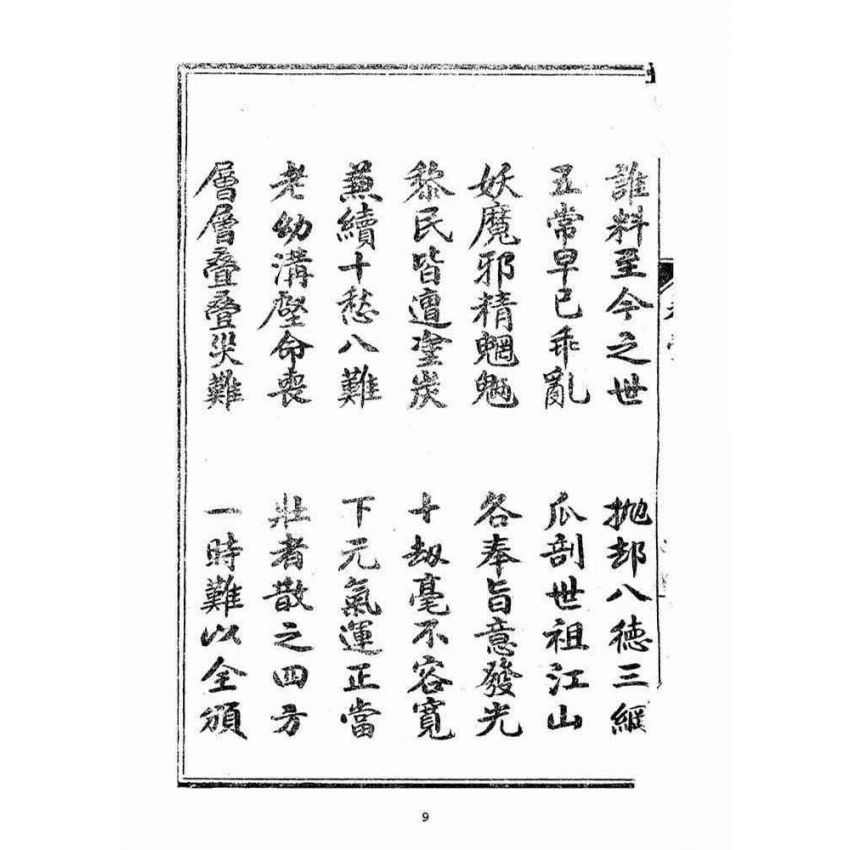 誰料至今之世 拋却八德三綱
五常早已乖亂 瓜剖世祖江山
妖魔邪精魍魎 各奉旨意發光
黎民皆遭塗炭 十劫毫不容寬
兼續十愁八難 下元氣運正當
老幼溝壑命喪 壯者散之四方
層層叠叠災難 一時難以全頒
9